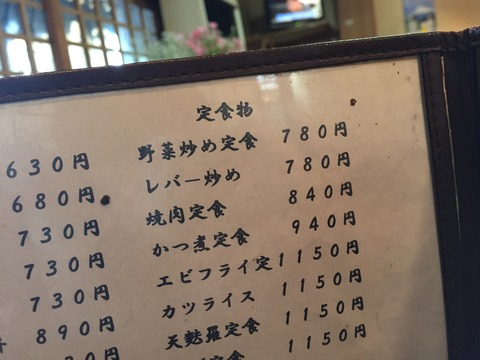 定食物
野菜炒め定食 780円
レバー炒め 780円
焼肉定食 840円
かつ煮定食 940円
エビフライ定 1150円
カツライス 1150円
天麩羅定食 1150円
定食 1150円
630円
680円
730円
730円
730円
890円
30円